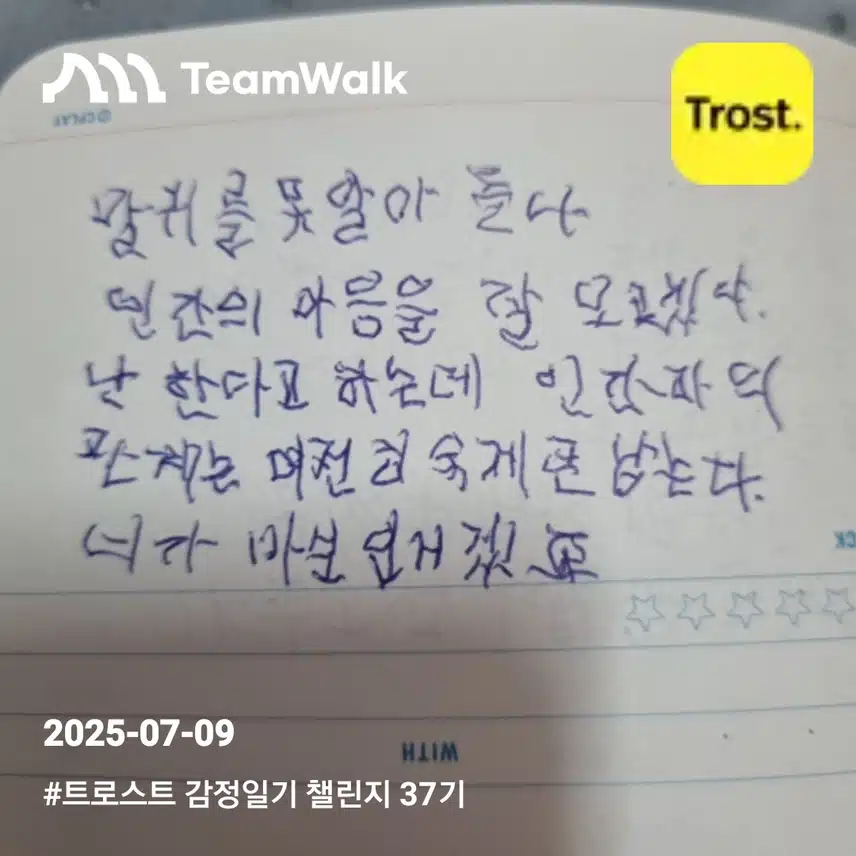 TeamWalk
Trost.
말귀를 못 알아 듣나
인간의 마음을 잘 모르겠다.
난 한다고 하는데 인간과의
관계는 여전히 숙제로 남는다.
내가 마음
WITH
2025-07-09
#트로스트 감정일기 챌린지 37기